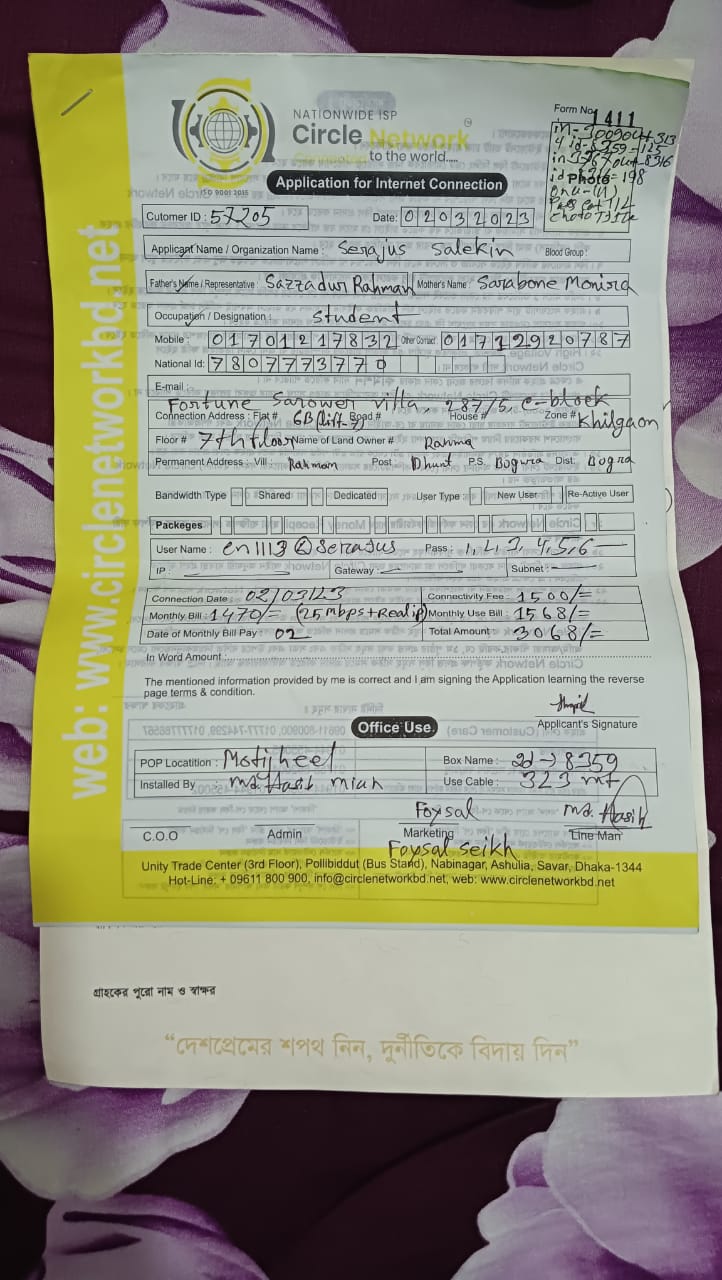 NATIONWIDE ISP
Circle Network
to the world.....
ISO 9001:2015
Form No. 1411
Photo
Application for Internet Connection
Cutomer ID : 57205 Date: 02032023
Applicant Name / Organization Name : Serajus Salekin Blood Group :
Father's Name / Representative : Sazzadur Rahman Mother's Name : Sarabone Monira
Occupation / Designation : Student
Mobile : 01701217832 Other Contact 01712920787
National Id: 7807773770
E-mail :
Fortune Sarower villa, 287/5, c-block
Connection Address : Flat # 6B(lift-7) Road # House # Zone # Khilgaon
Floor # 7th floor Name of Land Owner # Rahma
Permanent Address : Vill Rahman Post : Dhunt P.S. Bogura Dist. Bogra
Bandwidth Type Shared Dedicated User Type : New User Re-Active User
Packeges
User Name : Pass :
IP : Gateway : Subnet :
Connection Date : 02/03/23 Connectivity Fee : 1500/=
Monthly Bill : 1470/= (25 mbps + Real ip) Monthly Use Bill : 1568/=
Date of Monthly Bill Pay : 02 Total Amount : 3068/=
In Word Amount :
The mentioned information provided by me is correct and I am signing the Application learning the reverse
page terms & condition.
Applicant's Signature
Office Use
POP Locatition : Motijheel Box Name : 8359
Installed By : Md. Hasib miah Use Cable : 323 mt
Foysal Md. Hasib
C.O.O Admin Marketing Line Man
Foysal Seikh
Unity Trade Center (3rd Floor), Pollibiddut (Bus Stand), Nabinagar, Ashulia, Savar, Dhaka-1344
Hot-Line: + 09611 800 900, info@circlenetworkbd.net, web: www.circlenetworkbd.net
web: www.circlenetworkbd.net
গ্রাহকের পুরো নাম ও স্বাক্ষর
“দেশপ্রেমের শপথ নিন, দুর্নীতিকে বিদায় দিন”